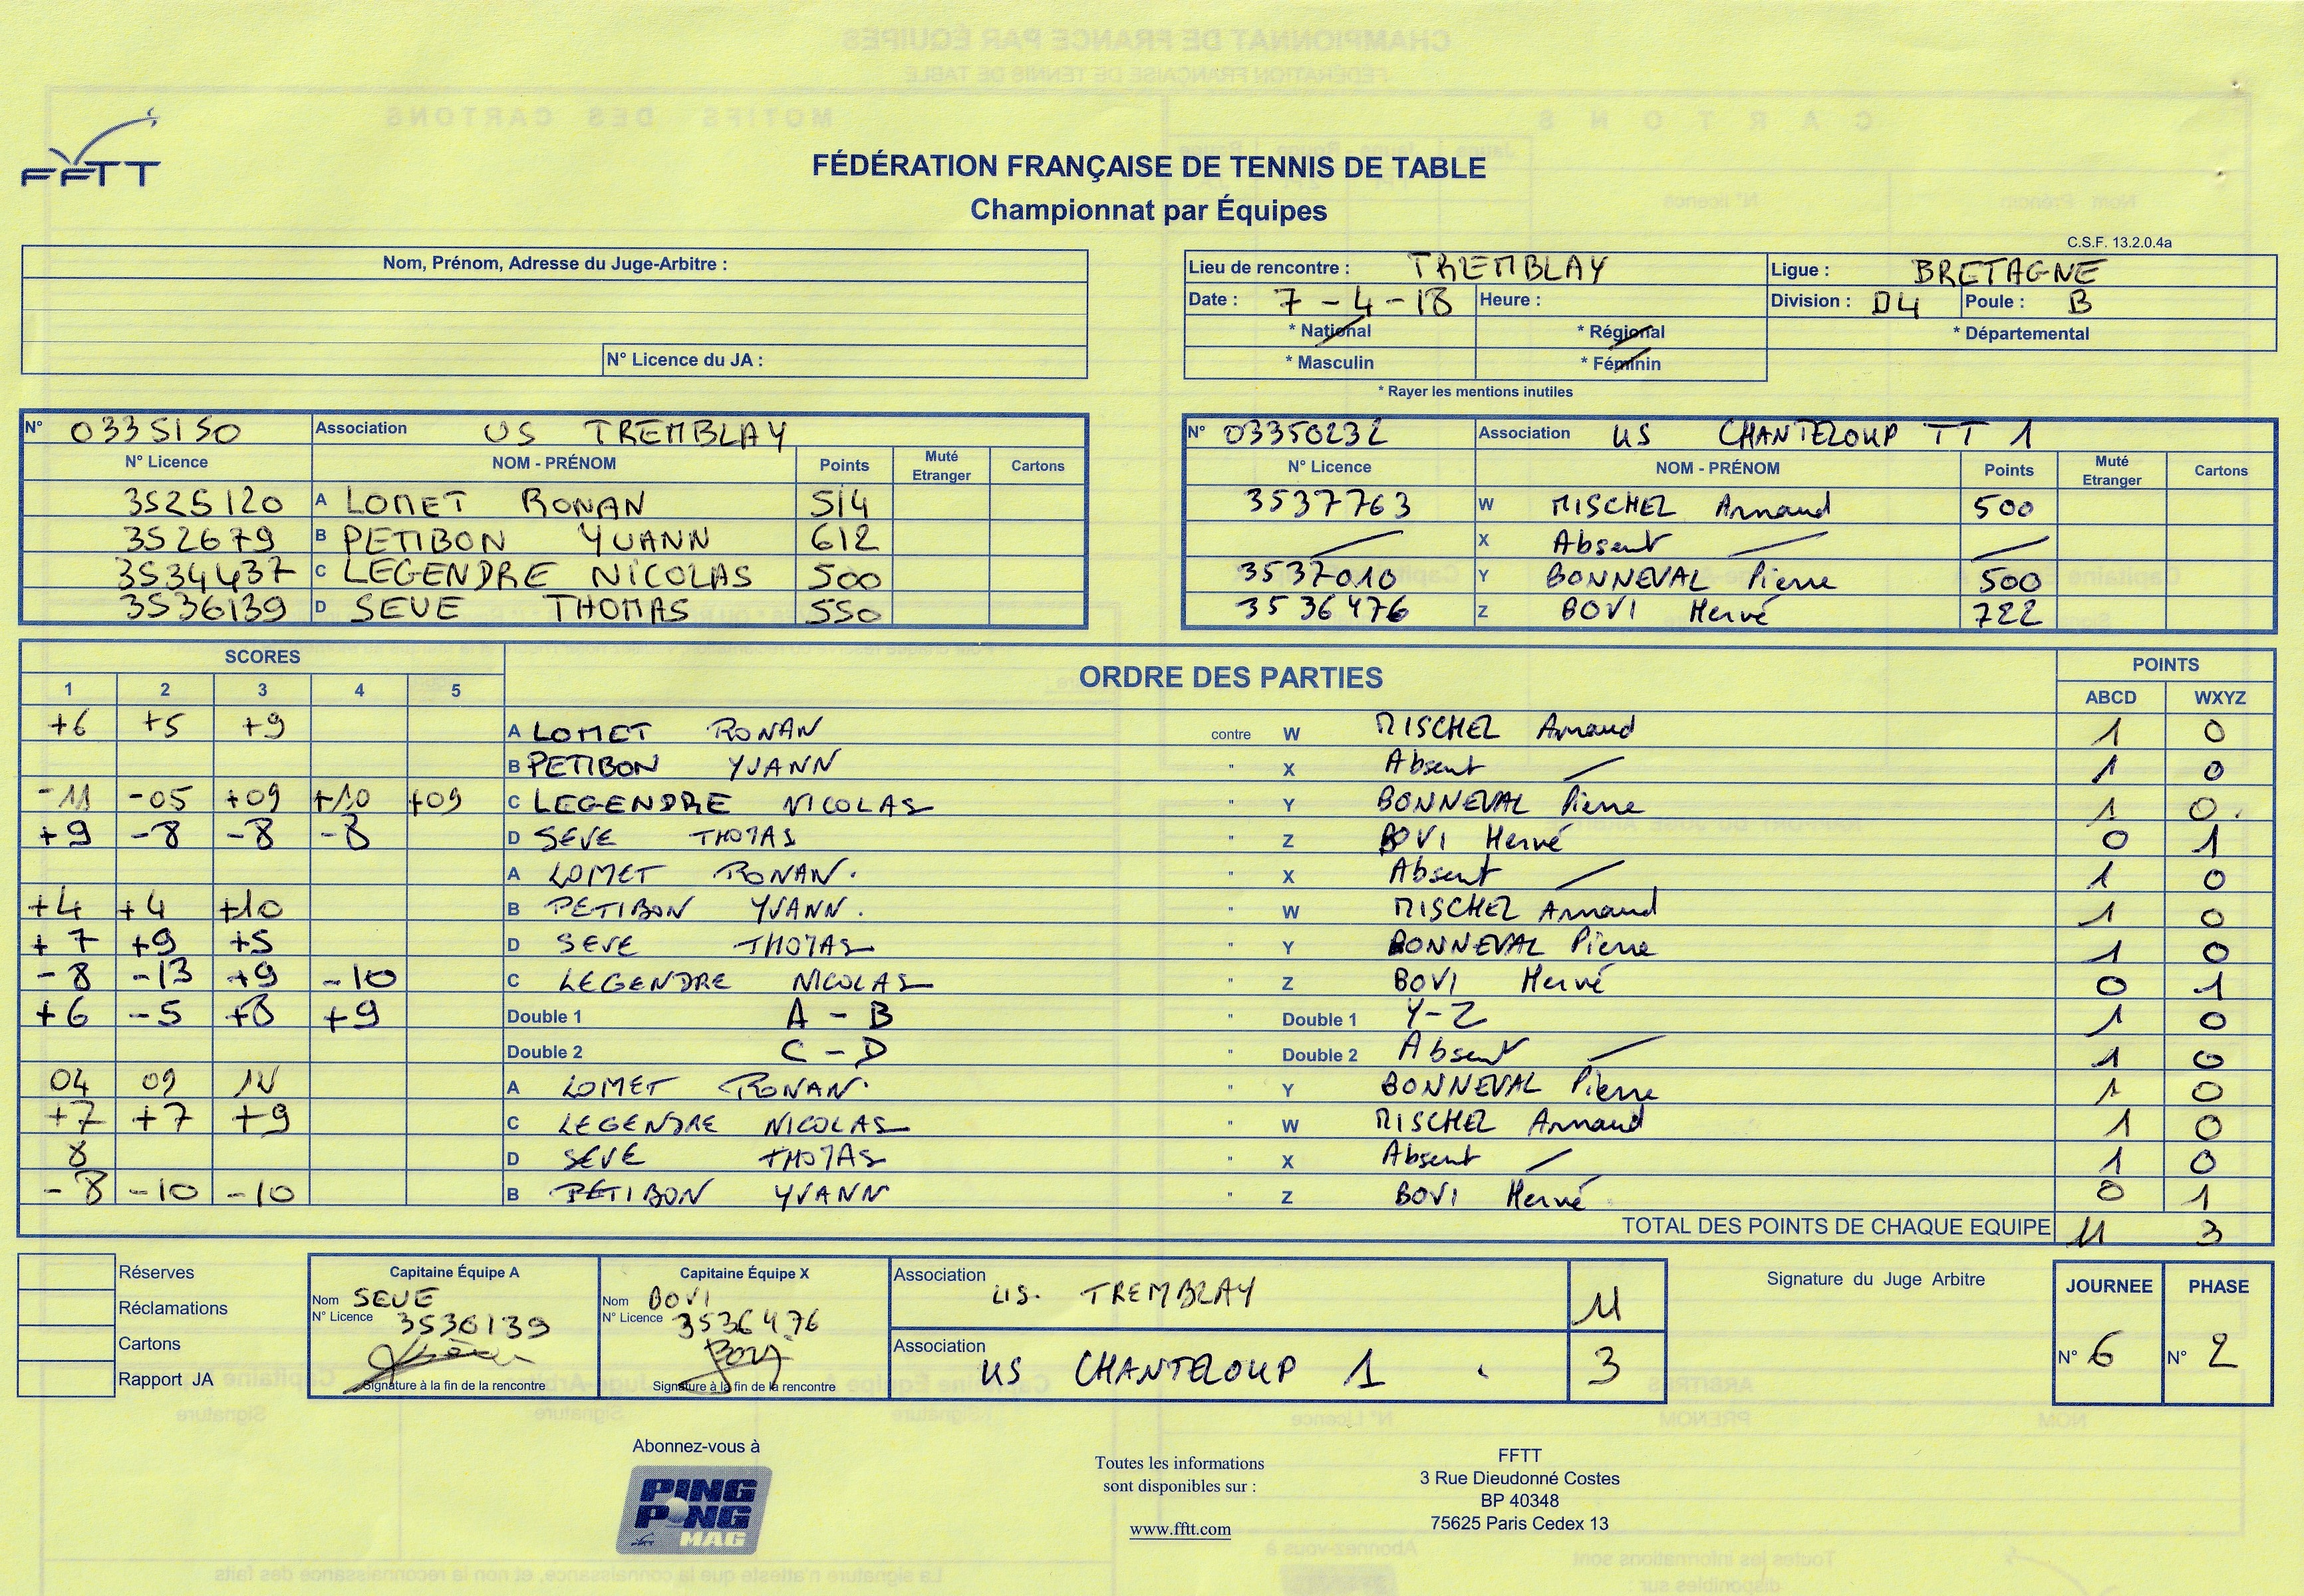 FFTT
FÉDÉRATION FRANÇAISE DE TENNIS DE TABLE
Championnat par Équipes
C.S.F. 13.2.0.4a
Nom, Prénom, Adresse du Juge-Arbitre :
N° Licence du JA :
Lieu de rencontre : TREMBLAY Ligue : BRETAGNE
Date : 7-4-18 Heure : Division : D4 Poule : B
* National * Régional * Départemental
* Masculin * Féminin
* Rayer les mentions inutiles
N° 0335150 Association US TREMBLAY
N° Licence NOM - PRÉNOM Points Muté Etranger Cartons
3525120 A LOMET RONAN 514
352679 B PETIBON YVANN 612
3534437 C LEGENDRE NICOLAS 500
3536139 D SEVE THOMAS 550
N° 03350232 Association US CHANTELOUP TT 1
N° Licence NOM - PRÉNOM Points Muté Etranger Cartons
3537763 W MISCHEL Arnaud 500
X Absent
3537010 Y BONNEVAL Pierre 500
3536476 Z BOVI Hervé 722
SCORES ORDRE DES PARTIES POINTS
1 2 3 4 5 ABCD WXYZ
+6 +5 +9 A LOMET RONAN contre W MISCHEL Arnaud 1 0
B PETIBON YVANN " X Absent 1 0
-11 -05 +09 +10 +09 C LEGENDRE NICOLAS " Y BONNEVAL Pierre 1 0
+9 -8 -8 -8 D SEVE THOMAS " Z BOVI Hervé 0 1
A LOMET RONAN. " X Absent 1 0
+4 +4 +10 B PETIBON YVANN. " W MISCHEL Arnaud 1 0
+7 +9 +5 D SEVE THOMAS " Y BONNEVAL Pierre 1 0
-8 -13 +9 -10 C LEGENDRE NICOLAS " Z BOVI Hervé 0 1
+6 -5 +8 +9 Double 1 A - B " Double 1 Y-Z 1 0
Double 2 C - D " Double 2 Absent 1 0
04 09 A LOMET RONAN. " Y BONNEVAL Pierre 1 0
+7 +7 +9 C LEGENDRE NICOLAS " W MISCHEL Arnaud 1 0
8 D SEVE THOMAS " X Absent 1 0
-8 -10 -10 B PETIBON YVANN " Z BOVI Hervé 0 1
TOTAL DES POINTS DE CHAQUE EQUIPE 11 3
Réserves
Réclamations
Cartons
Rapport JA
Capitaine Équipe A
Nom SEVE
N° Licence 3536139
Signature à la fin de la rencontre
Capitaine Équipe X
Nom BOVI
N° Licence 3536476
Bovi
Signature à la fin de la rencontre
Association US. TREMBLAY 11
Association US CHANTELOUP 1 3
Signature du Juge Arbitre
JOURNEE PHASE
N° 6 N° 2
Abonnez-vous à
PING PONG MAG
Toutes les informations
sont disponibles sur :
www.fftt.com
FFTT
3 Rue Dieudonné Costes
BP 40348
75625 Paris Cedex 13